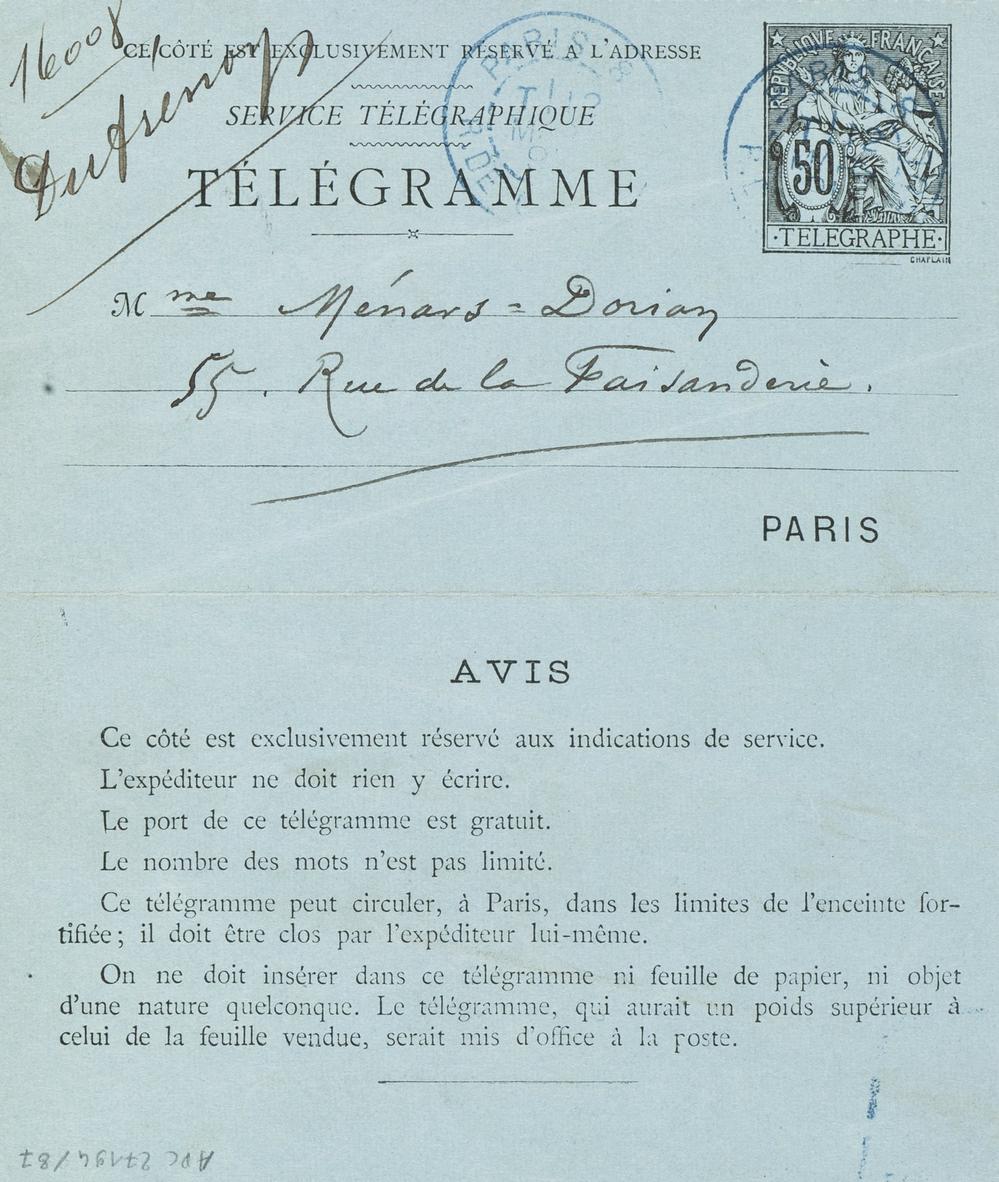 16008
CE CÔTÉ EST EXCLUSIVEMENT RÉSERVÉ A L'ADRESSE
SERVICE TÉLÉGRAPHIQUE
TÉLÉGRAMME
RÉPUBLIQUE FRANÇAISE
50
TELEGRAPHE
CHAPLAIN
PARIS
PARIS
Mme Ménars=Dorian
55, Rue de la Faisanderie.
PARIS
AVIS
Ce côté est exclusivement réservé aux indications de service.
L'expéditeur ne doit rien y écrire.
Le port de ce télégramme est gratuit.
Le nombre des mots n'est pas limité.
Ce télégramme peut circuler, à Paris, dans les limites de l'enceinte for-
tifiée; il doit être clos par l'expéditeur lui-même.
On ne doit insérer dans ce télégramme ni feuille de papier, ni objet
d'une nature quelconque. Le télégramme, qui aurait un poids supérieur à
celui de la feuille vendue, serait mis d'office à la poste.